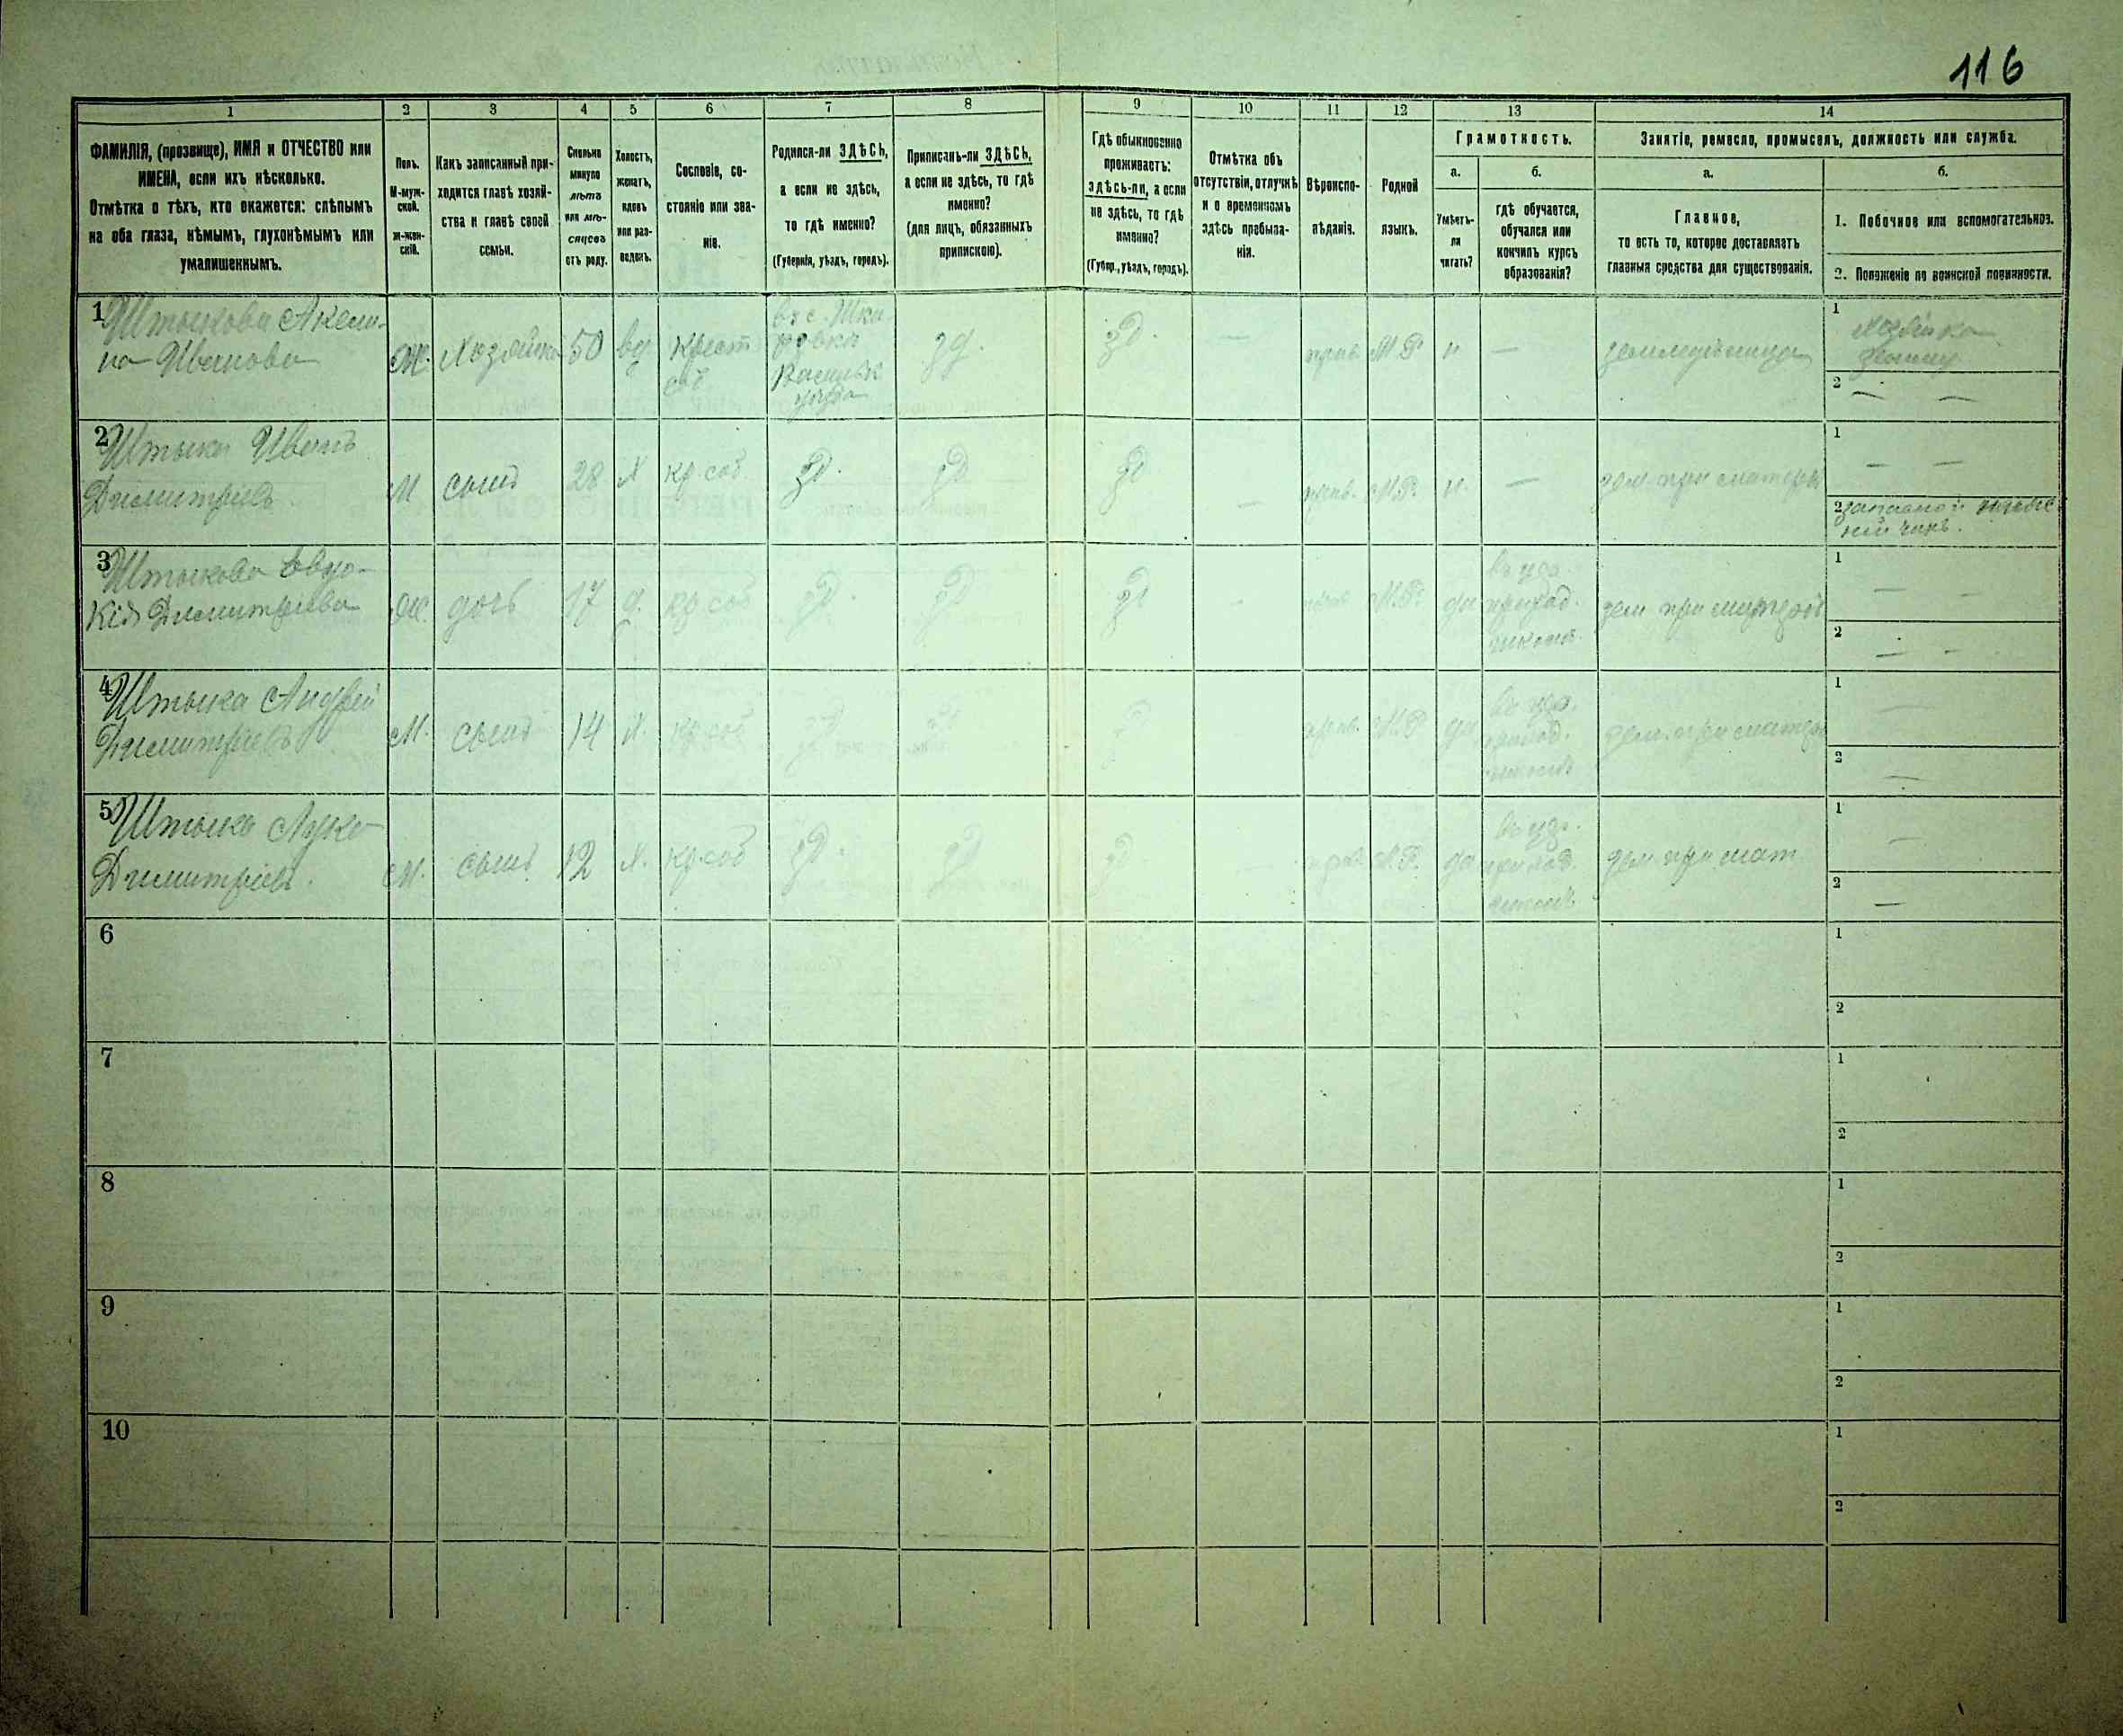 116
1 2 3 4 5 6 7 8 9 10 11 12 13 14
ФАМИЛІЯ, (прозвище), ИМЯ и ОТЧЕСТВО или
ИМЕНА, если ихъ нѣсколько.
Отмѣтка о тѣхъ, кто окажется: слѣпымъ
на оба глаза, нѣмымъ, глухонѣмымъ или
умалишеннымъ.
Полъ.
М-муж-
ской.
ж-жен-
скій.
Какъ записанный при-
ходится главѣ хозяй-
ства и главѣ своей
семьи.
Сколько
минуло
лѣтъ
или мѣ-
сяцевъ
отъ роду.
Холостъ,
женатъ,
вдовъ
или раз-
веденъ.
Сословіе, со-
стояніе или зва-
ніе.
Родился-ли ЗДѢСЬ,
а если не здѣсь,
то гдѣ именно?
(Губернія, уѣздъ, городъ).
Приписанъ-ли ЗДѢСЬ,
а если не здѣсь, то гдѣ
именно?
(для лицъ, обязанныхъ
припискою).
Гдѣ обыкновенно
проживаетъ:
здѣсь-ли, а если
не здѣсь, то гдѣ
именно?
(Губер., уѣздъ, городъ).
Отмѣтка объ
отсутствіи, отлучкѣ
и о временномъ
здѣсь пребыва-
ніи.
Вѣроиспо-
вѣданіе.
Родной
языкъ.
Грамотность.
а.
Умѣетъ-
ли
читать?
б.
гдѣ обучается,
обучался или
кончилъ курсъ
образованія?
Занятіе, ремесло, промыселъ, должность или служба.
а.
Главное,
то есть то, которое доставляетъ
главныя средства для существованія.
б.
1. Побочное или вспомогательное.
2. Положеніе по воинской повинности.
1 Штыкова Акели-
на Иванова
Ж. Хозяйка 50 вд крест
соб
въ с. Шка
ровка
Васильк
уѣзда
зд. зд. — прав. М.Р. н —
1 Хозяйка
2 — —
2 Штыка Иванъ
Димитріевъ
М сынъ 28 Х кр соб зд. зд зд — прав. М.Р. н. — зем. при матери
1 — —
2
3 Штыкова Евдо-
кія Димитріева
Ж. дочь 17 д. кр соб зд. зд зд — прав. М.Р. да
приход.
зем при матери
1 — —
2 — —
4 Штыка Андрей
Димитріевъ
М. сынъ 14 Х. кр соб зд зд зд прав. М.Р. да
приход.
зем. при матери
1 —
2 —
5 Штыка Лука
Димитріевъ.
М. сынъ 12 Х. кр соб зд. зд зд — прав. М.Р. да
приход.
зем при мат
1 —
2 —
6
1
2
7
1
2
8
1
2
9
1
2
10
1
2